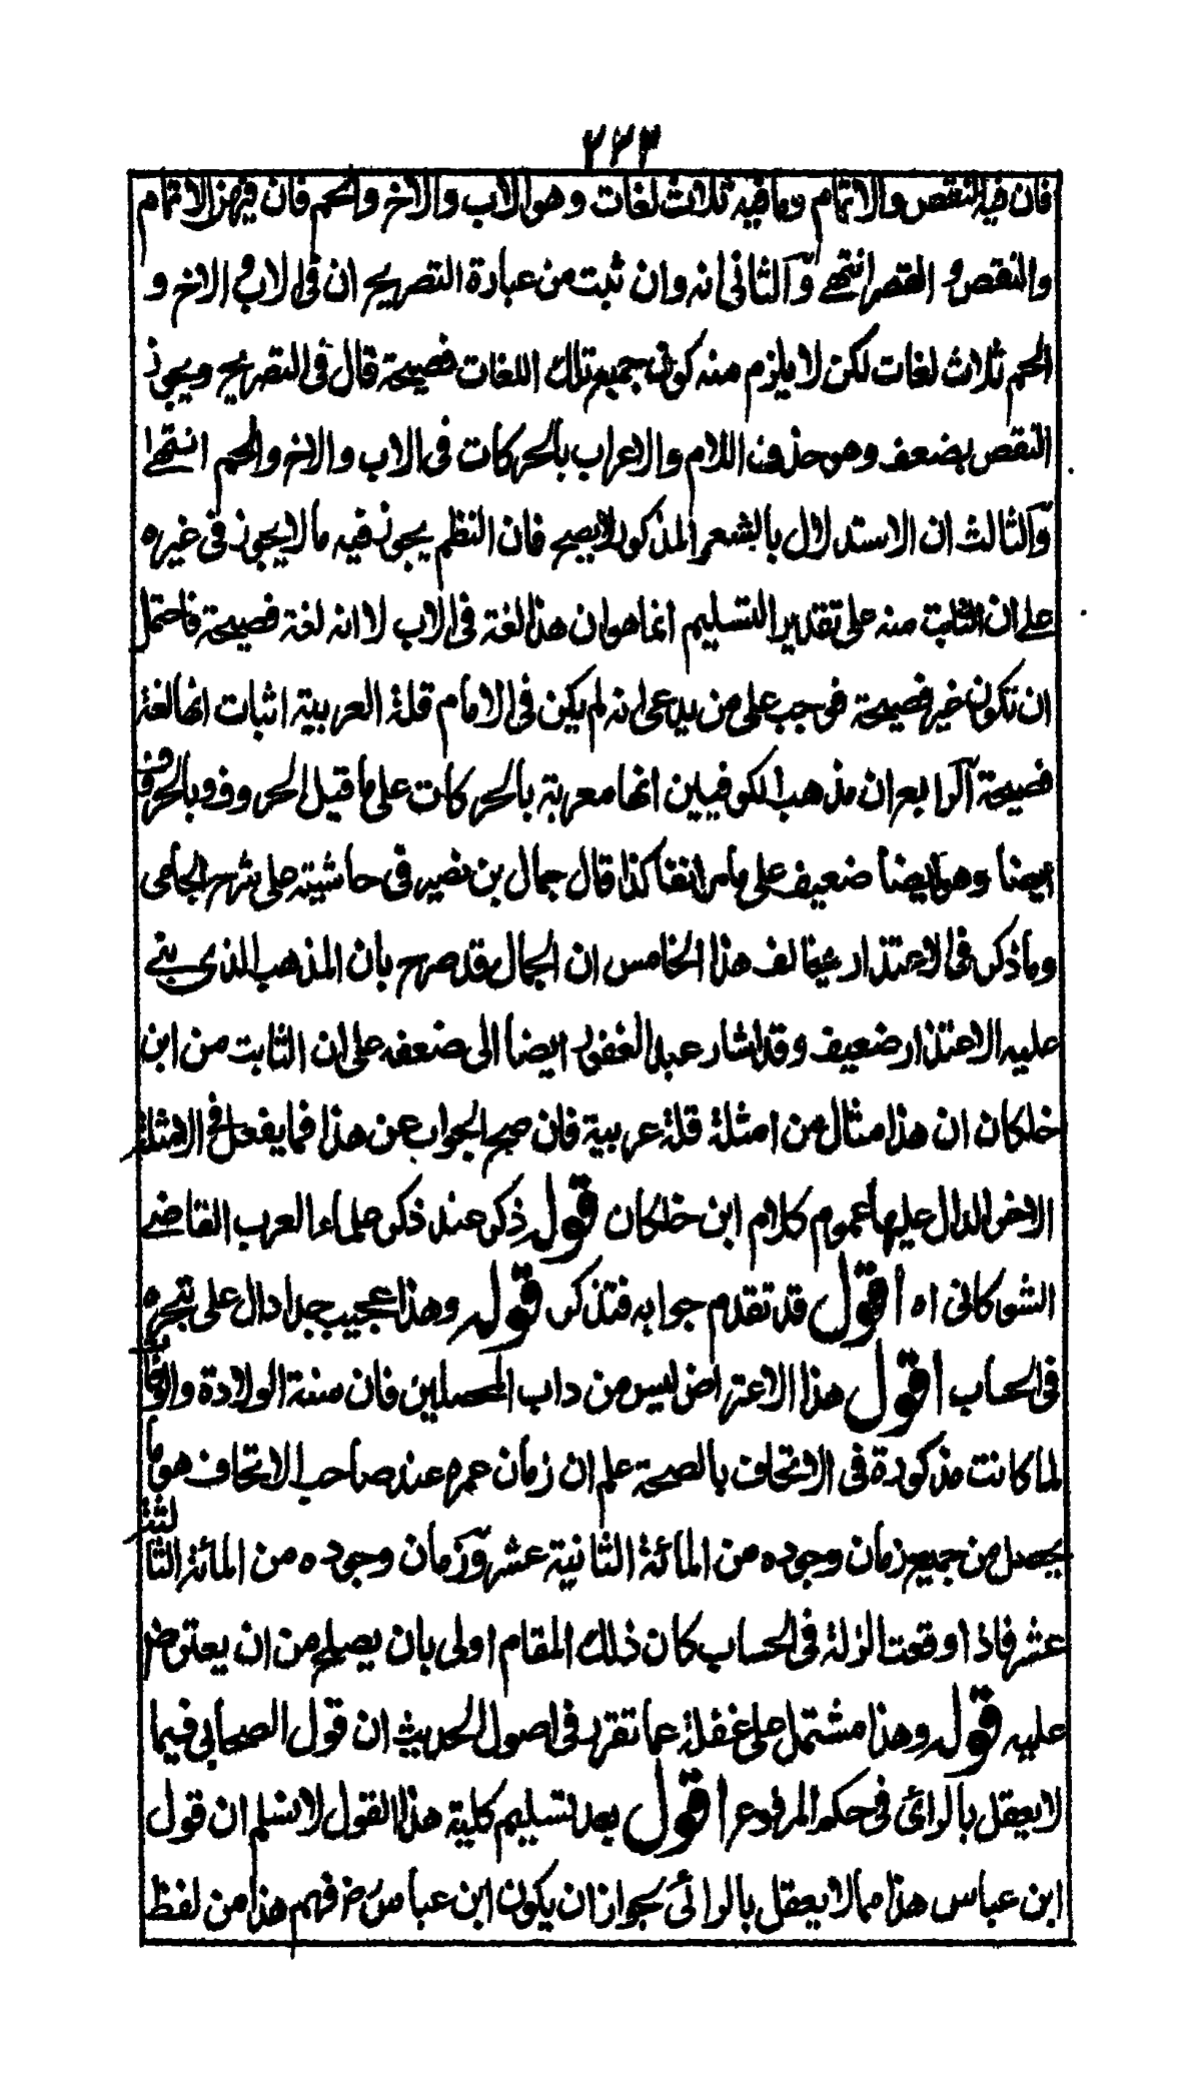 ٢٢٣
فان فيه النقص والاتمام وما فيه ثلاث لغات وهو الاب والاخ والحم فان فيهن الاتمام
والنقص والقصر انتهى وّالثانى انه وان ثبت من عبارة التصريح ان فى الاب والاخ و
الحم ثلاث لغات لكن لا يلزم منه كون جميع تلك اللغات فصيحة قال فى التصريح ويجوز
النقص بضعف وهو حذف اللام والاعراب بالحركات فى الاب والاخ والحم انتهى
وّالثالث ان الاستدلال بالشعر المذكور لا يصح فان النظم يجوز فيه ما لا يجوز فى غيره
على ان الثابت منه على تقدير التسليم انما هو ان هذا لغة فى الاب لا انه لغة فصيحة فاحتمل
ان تكون غير فصيحة فوجب على من يدعى انه لم يكن فى الامام قلة العربية اثبات انها لغة
فصيحة آلرابع ان مذهب الكوفيين انها معربة بالحركات على ما قبل الحروف وبالحروف
ايضا وهو ايضا ضعيف على ما مر انفا كذا قال جمال بن نصير فى حاشيته على شرح الجامى
وما ذكر فى الاعتذار يخالف هذا الخامس ان الجمال قد صرح بان المذهب الذى بنى
عليه الاعتذار ضعيف وقد اشار عبد الغفور ايضا الى ضعفه على ان الثابت من ابن
خلكان ان هذا مثال من امثلة قلة عربية فان صح الجواب عن هذا فما يفعل فى الامثلة
الاخر الدال عليها عموم كلام ابن خلكان قوله ذكر عند ذكر علماء العرب القاضى
الشوكانى اه اقول قد تقدم جوابه فتذكر قوله وهذا عجيب جدا دال على تبحره
فى الحساب اقول هذا الاعتراض ليس من داب المحصلين فان سنة الولادة والوفاة
لما كانت مذكورة فى الاتحاف بالصحة علم ان زمان عمره عند صاحب الاتحاف هو ما
يحصل من جميع زمان وجوده من المائة الثانية عشر وّزمان وجوده من المائة الثالثة
عشر فاذا وقعت الزلة فى الحساب كان ذلك المقام اولى بان يصلح من ان يعترض
عليه قوله وهذا مشتمل على غفلة عما تقرر فى اصول الحديث ان قول الصحابى فيما
لا يعقل بالرائ فى حكم المرفوع اقول بعد تسليم كلية هذا القول لا نسلم ان قول
ابن عباس هذا مما لا يعقل بالرائ لجواز ان يكون ابن عباس رض فهم هذا من لفظ